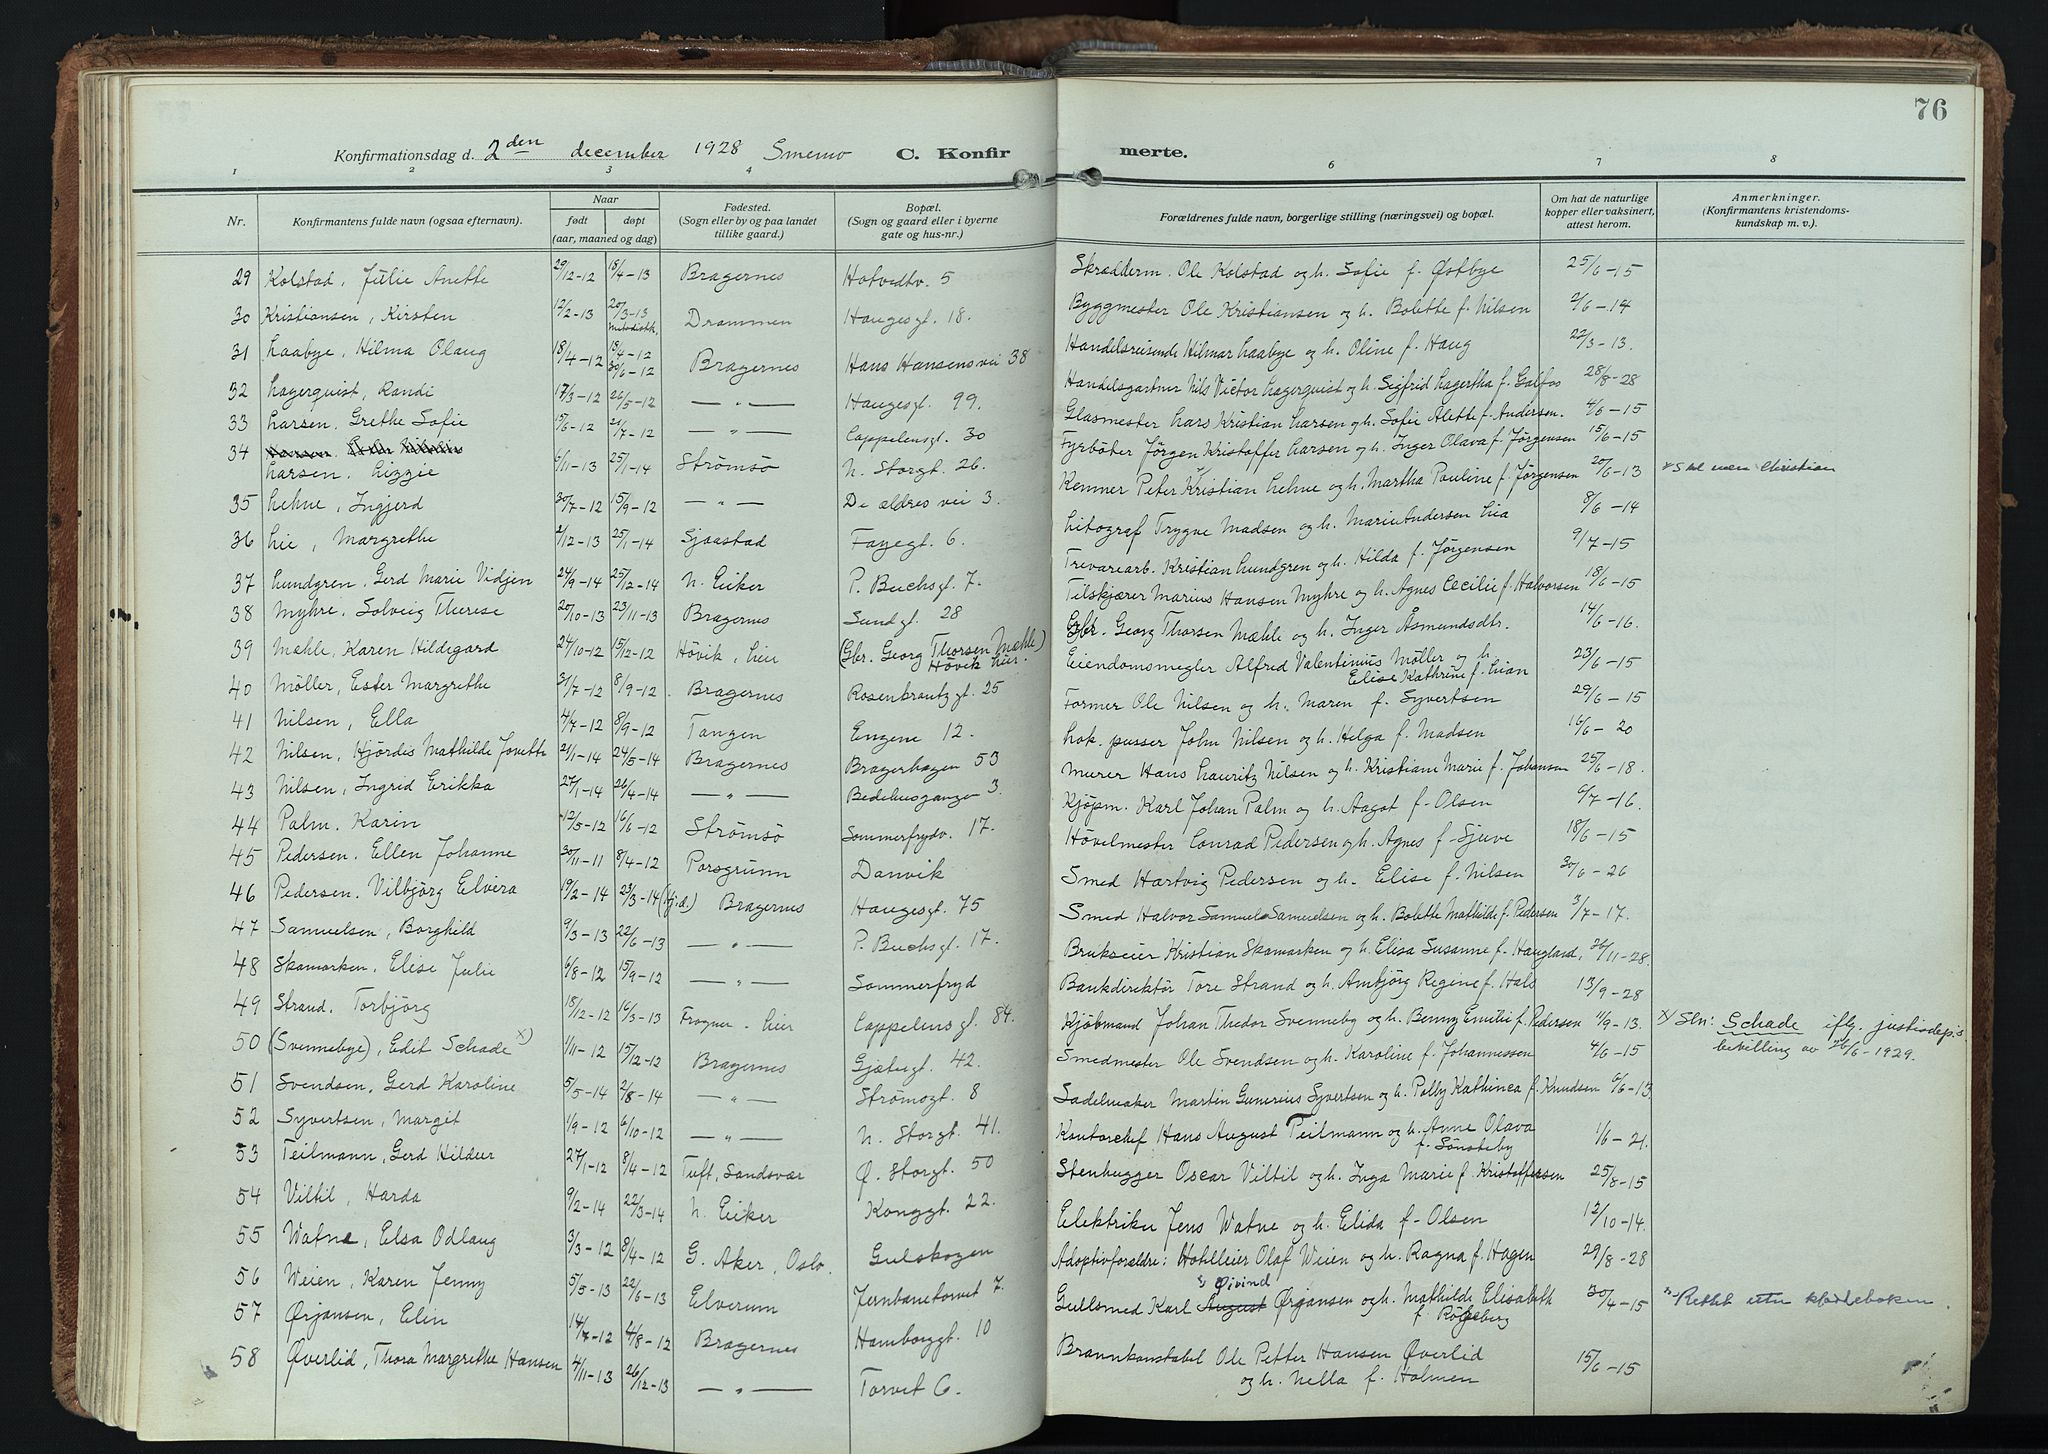 76
Konfirmationsdag d. 2den december 1928 C. Konfirmerte.
1 2 3 4 6 7 8
Nr. Konfirmantens fulde navn (ogsaa efternavn). Naar født døpt (aar, maaned og dag) Fødested. (Sogn eller by og paa landet tillike gaard.) Bopæl. (Sogn og gaard eller i byerne gate og hus-nr.) Forældrenes fulde navn, borgerlige stilling (næringsvei) og bopæl. Om hat de naturlige kopper eller vaksinert, attest herom. Anmerkninger. (Konfirmantens kristendomskundskap m. v.).
29 Kolstad, Julie Anette 29/12-12 15/4-13 Bragernes Hotvedtv. 5 Skrædderm. Ole Kolstad og h. Sofie f. Østbye 25/6-15
30 Kristiansen, Kirsten 12/2-13 20/3-13 metodistk. Drammen Haugesgt. 18. Byggmester Ole Kristiansen og h. Bolette f. Nilsen 2/6-14
31 Laabye, Hilma Olaug 18/4-12 30/6-12 Bragernes Hans Hansens vei 38 Handelsreisende Hilmar Laabye og h. Oline f. Haug 22/3-13.
32 Lagerquist, Randi 17/3-12 26/5-12 — " — Haugesgt. 99. Handelsgartner Nils Victor Lagerquist og h. Sigfrid Lagertha f. Golfos 28/8-28
33 Larsen, Grethe Sofie 15/6-12 21/7-12 — " — Cappelensgt. 30 Glasmester Lars Kristian Larsen og h. Sofie Alette f. Andersen. 4/6-15
34 Larsen, Lizzie 5/11-13 25/1-14 Strømsø N. Storgt. 26. Fyrbøter Jørgen Kristoffer Larsen og h. Inger Olava f. Jørgensen 15/6-15
35 Lehne, Ingjerd 30/7-12 15/9-12 — " — De ældres vei 3. Kemner Peter Kristian Lehne og h. Martha Pauline f. Jørgensen 20/6-13 x Skal være Christian
36 Lie, Margrethe 2/12-13 25/1-14 Sjaastad Fayegt. 6. Litograf Trygve Madsen og h. Marie Andersen Lia 8/6-14
37 Lundgren, Gerd Marie Vidjen 24/9-14 25/12-14 N. Eiker P. Buchsgt. 7. Trevarearb. Kristian Lundgren og h. Hilda f. Jørgensen 9/7-15
38 Myhre, Solveig Therese 20/10-13 23/11-13 Bragernes Sundgt. 28 Tilskjærer Marius Hansen Myhre og h. Agnes Cecilie f. Halvorsen 18/6-15
39 Mæhle, Karen Hildegard 24/10-12 15/12-12 Høvik, Lier (Gbr. Georg Thorsen Mæhle) Høvik Lier. Gbr. Georg Thorsen Mæhle og h. Inger Åsmundsdtr. 14/6-16.
40 Möller, Ester Margrethe 31/7-12 8/9-12. Bragernes Rosenkrantzgt. 25 Eiendomsmegler Alfred Valentinius Möller og h. Elise Kathrine f. Lian 23/6-15
41 Nilsen, Ella 4/7-12 8/9-12 Tangen Engene 12. Former Ole Nilsen og h. Maren f. Syvertsen 29/6-15
42 Nilsen, Hjördis Mathilde Jonette 21/1-14 24/5-14 Bragernes Bragerhagen 53 Lok. pusser John Nilsen og h. Helga f. Madsen 16/6-20
43 Nilsen, Ingrid Erikka 27/1-14 26/4-14 — " — Bedehusgangen 3. Murer Hans Lauritz Nilsen og h. Kristiane Marie f. Johansen 25/6-18.
44 Palm, Karin 12/5-12 16/6-12 Strømsö Sommerfrydv. 17. Kjøpm. Karl Johan Palm og h. Aagot f. Olsen 6/7-16.
45 Pedersen, Ellen Johanne 30/11-11 8/4-12 Porsgrunn Danvik Høvelmester Conrad Pedersen og h. Agnes f. Sjuve 18/6-15
46 Pedersen, Vilbjörg Elvira 19/2-14 23/3-14 (hjd.) Bragernes Haugesgt. 75 Smed Hartvig Pedersen og h. Elise f. Nilsen 30/6-26
47 Samuelsen, Borghild 9/3-13 22/6-13 — " — P. Buchsgt. 17. Smed Halvor Samuel Samuelsen og h. Bolette Mathilde f. Pedersen 3/7-17.
48 Skamarken, Elise Julie 6/8-12 15/9-12 — " — Sommerfryd Brukseier Kristian Skamarken og h. Elisa Susanne f. Haugland, 26/11-28.
49 Strand, Torbjörg 15/12-12 16/3-13 Frogner, Lier Cappelensgt. 84. Bankdirektör Tore Strand og h. Ambjörg Regine f. Hals 13/9-28
50 (Svennebye), Edit Schade x) 1/11-12 15/12-12 Bragernes Gjetergt. 42. Kjøbmand Johan Thedor Svenneby og h. Benny Emilie f. Pedersen 11/9-13. x) Sln: Schade iflg. justisdep.s bevilling av 26/6-1929.
51 Svendsen, Gerd Karoline 5/5-14 2/8-14 — " — Strømsgt. 8 Smedmester Ole Svendsen og h. Karoline f. Johannessen 4/6-15
52 Syvertsen, Margit 1/9-12 6/10-12 — " — N. Storgt. 41. Sadelmaker Martin Gunerius Syvertsen og h. Polly Kathinca f. Knudsen 6/6-13
53 Teilmann, Gerd Hildur 27/1-12 8/4-12 Tuft, Sandsvær Ø. Storgt. 50 Kontorchef Hans August Teilmann og h. Anne Olava f. Sønsteby 1/6-21.
54 Viltil, Harda 9/2-14 22/3-14 N. Eiker Konggt. 22. Stenhugger Oscar Viltil og h. Inga Marie f. Kristoffersen 25/8-15
55 Watne, Elsa Odlaug 3/3-12 8/4-12 G. Aker, Oslo. Gulskogen Elektriker Jens Watne og h. Elida f. Olsen 12/10-14.
56 Weien, Karen Jenny 5/5-13 22/6-13 Elverum Jernbanetorvet 7. Adoptivforeldre: Hotelleier Olaf Weien og h. Ragna f. Hagen 29/8-28
57 Ørjansen, Elin 14/7-12 4/8-12 Bragernes Hamborggt. 10 Gullsmed Karl August x) Øivind Ørjansen og h. Mathilde Elisabeth f. Røgeberg 30/4-15 x) Rettet efter klokkeboken.
58 Øverlid, Thora Margrethe Hansen 4/11-13 26/12-13 — " — Torvet 6. Brannkonstabel Ole Petter Hansen Øverlid og h. Nella f. Holmen 15/6-15